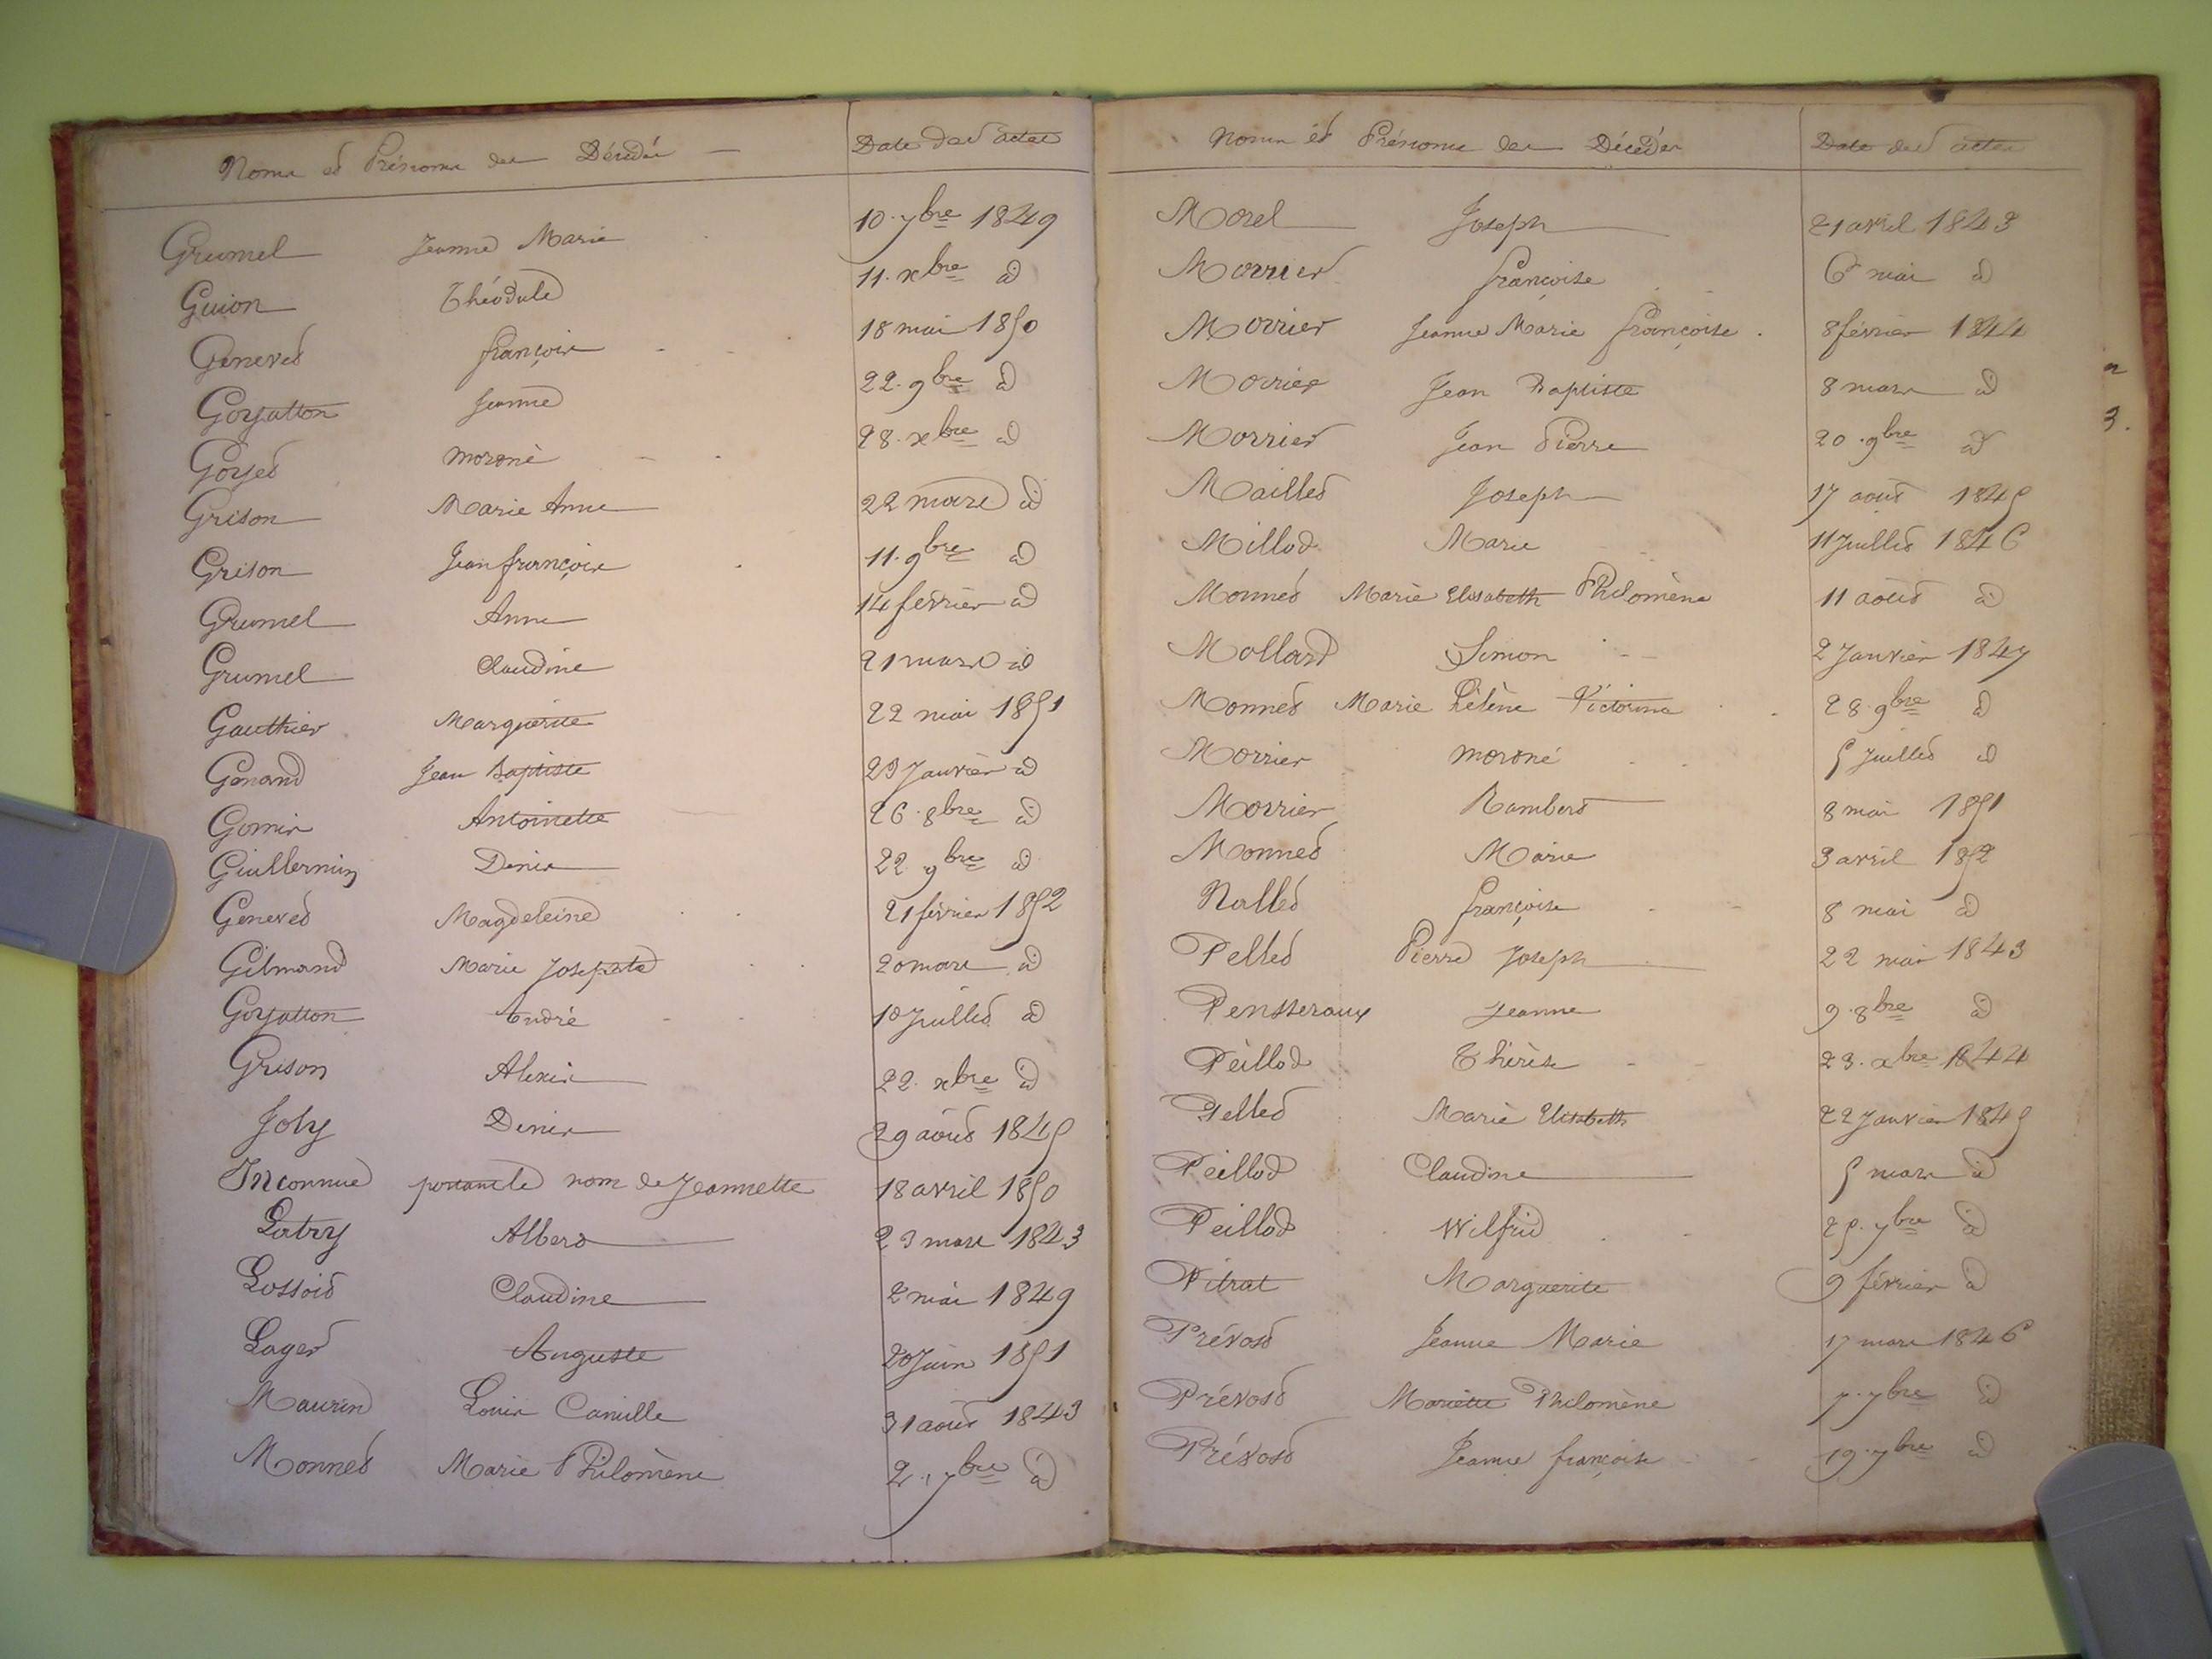 Noms et Prénoms des Décédés
Date des actes
Grumel Jeanne Marie 10. 7bre 1849
Guion Théodule 11. xbre id
Genevet françois 18 mai 1850
Goyatton Jeanne 22. 9bre id
Goyet mort né 28. xbre id
Grison Marie Anne 22 mars id
Grison Jean françois 11. 9bre id
Grumel Anne 14 février id
Grumel Claudine 21 mars id
Gauthier Marguerite 22 mai 1851
Genand Jean Baptiste 23 Janvier id
Gomis Antoinette 26. 8bre id
Guillermin Denis 22 9bre id
Genevet Magdeleine 21 février 1852
Gilmand Marie Josephte 20 mars id
Goyatton André 10 Juillet id
Grison Alexis 22. xbre id
Joly Denis 29 août 1845
Inconnue portant le nom de Jeannette 18 avril 1850
Latry Albert 23 mars 1843
Lossoit Claudine 2 mai 1849
Lager Auguste 20 Juin 1851
Maurin Louis Camille 31 août 1843
Monnet Marie Philomène 2. 7bre id
Noms et Prénoms des Décédés
Date des actes
Morel Joseph 21 avril 1843
Morrier françoise 6 mai id
Morrier Jeanne Marie françoise 8 février 1844
Morrier Jean Baptiste 8 mars id
Morrier Jean Pierre 20. 9bre id
Maillet Joseph 17 août 1845
Millod Marie 11 Juillet 1846
Monnet Marie Elisabeth Philomène 11 août id
Mollard Simon 2 Janvier 1847
Monnet Marie Hélène Victorine 28. 9bre id
Morrier mort né 5 Juillet id
Morrier Rambert 8 mai 1851
Monnet Marie 3 avril 1852
Nallet françoise 8 mai id
Pellet Pierre Joseph 22 mai 1843
Pensseraux Jeanne 9. 8bre id
Peillod Thérèse 23. xbre 1844
Pellet Marie Elisabeth 22 Janvier 1845
Peillod Claudine 5 mars id
Peillod Wilfrid 25. 7bre id
Pitrat Marguerite 9 février id
Prévost Jeanne Marie 17 mars 1846
Prévost Mariette Philomène 7. 7bre id
Prévost Jeanne françoise 19. 7bre id
3.